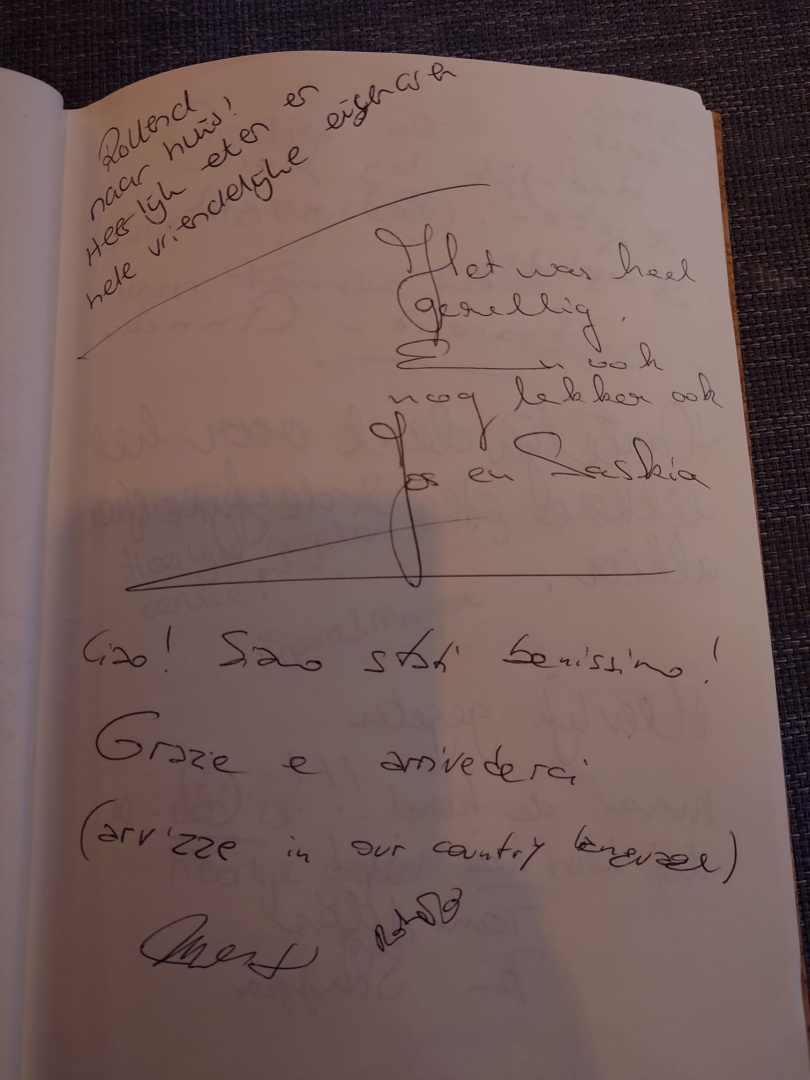 Rollend
naar huis!
Heerlijk eten en
hele vriendelijke eigenaren
Het was heel
gezellig.
En ook
nog lekker ook
Jos en Saskia
Ciao! Siamo stati benissimo!
Grazie e arrivederci
(arvizze in our country language)